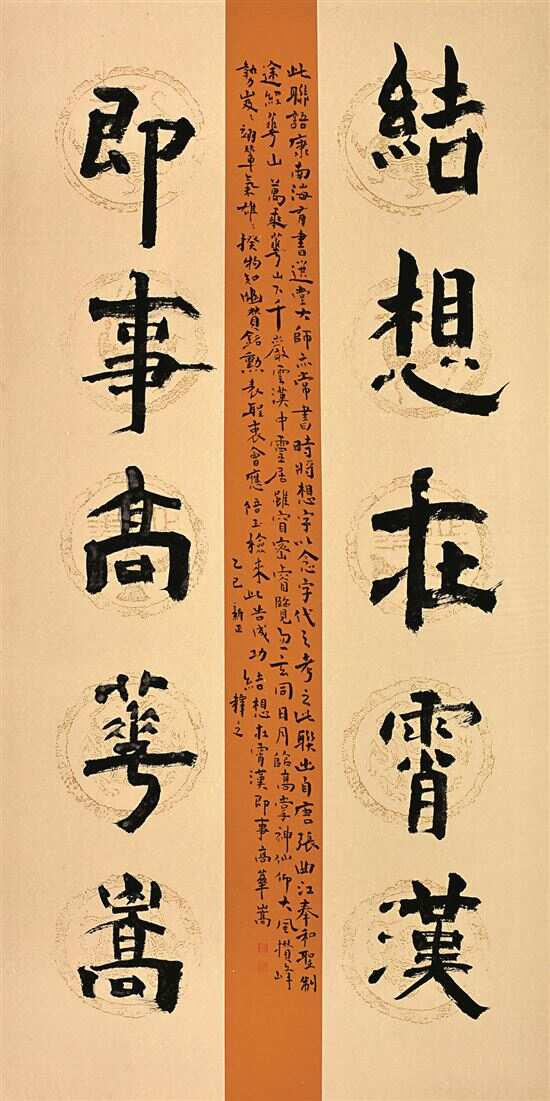 結想在霄漢
此聯語康南海有書選堂大師亦常書時將想字以念字代之考之此聯出自唐張曲江奉和聖制
途經華山 萬乘華山下千巖雲漢中靈居雖窅密睿覽忽玄同日月臨高掌神仙仰大風攢峰
勢岌〻翊輦氣雄〻揆物知幽贊銘勳表聖衷會應陪玉檢來此告成功 結想在霄漢即事高華嵩
乙巳新正 釋之
即事髙華嵩